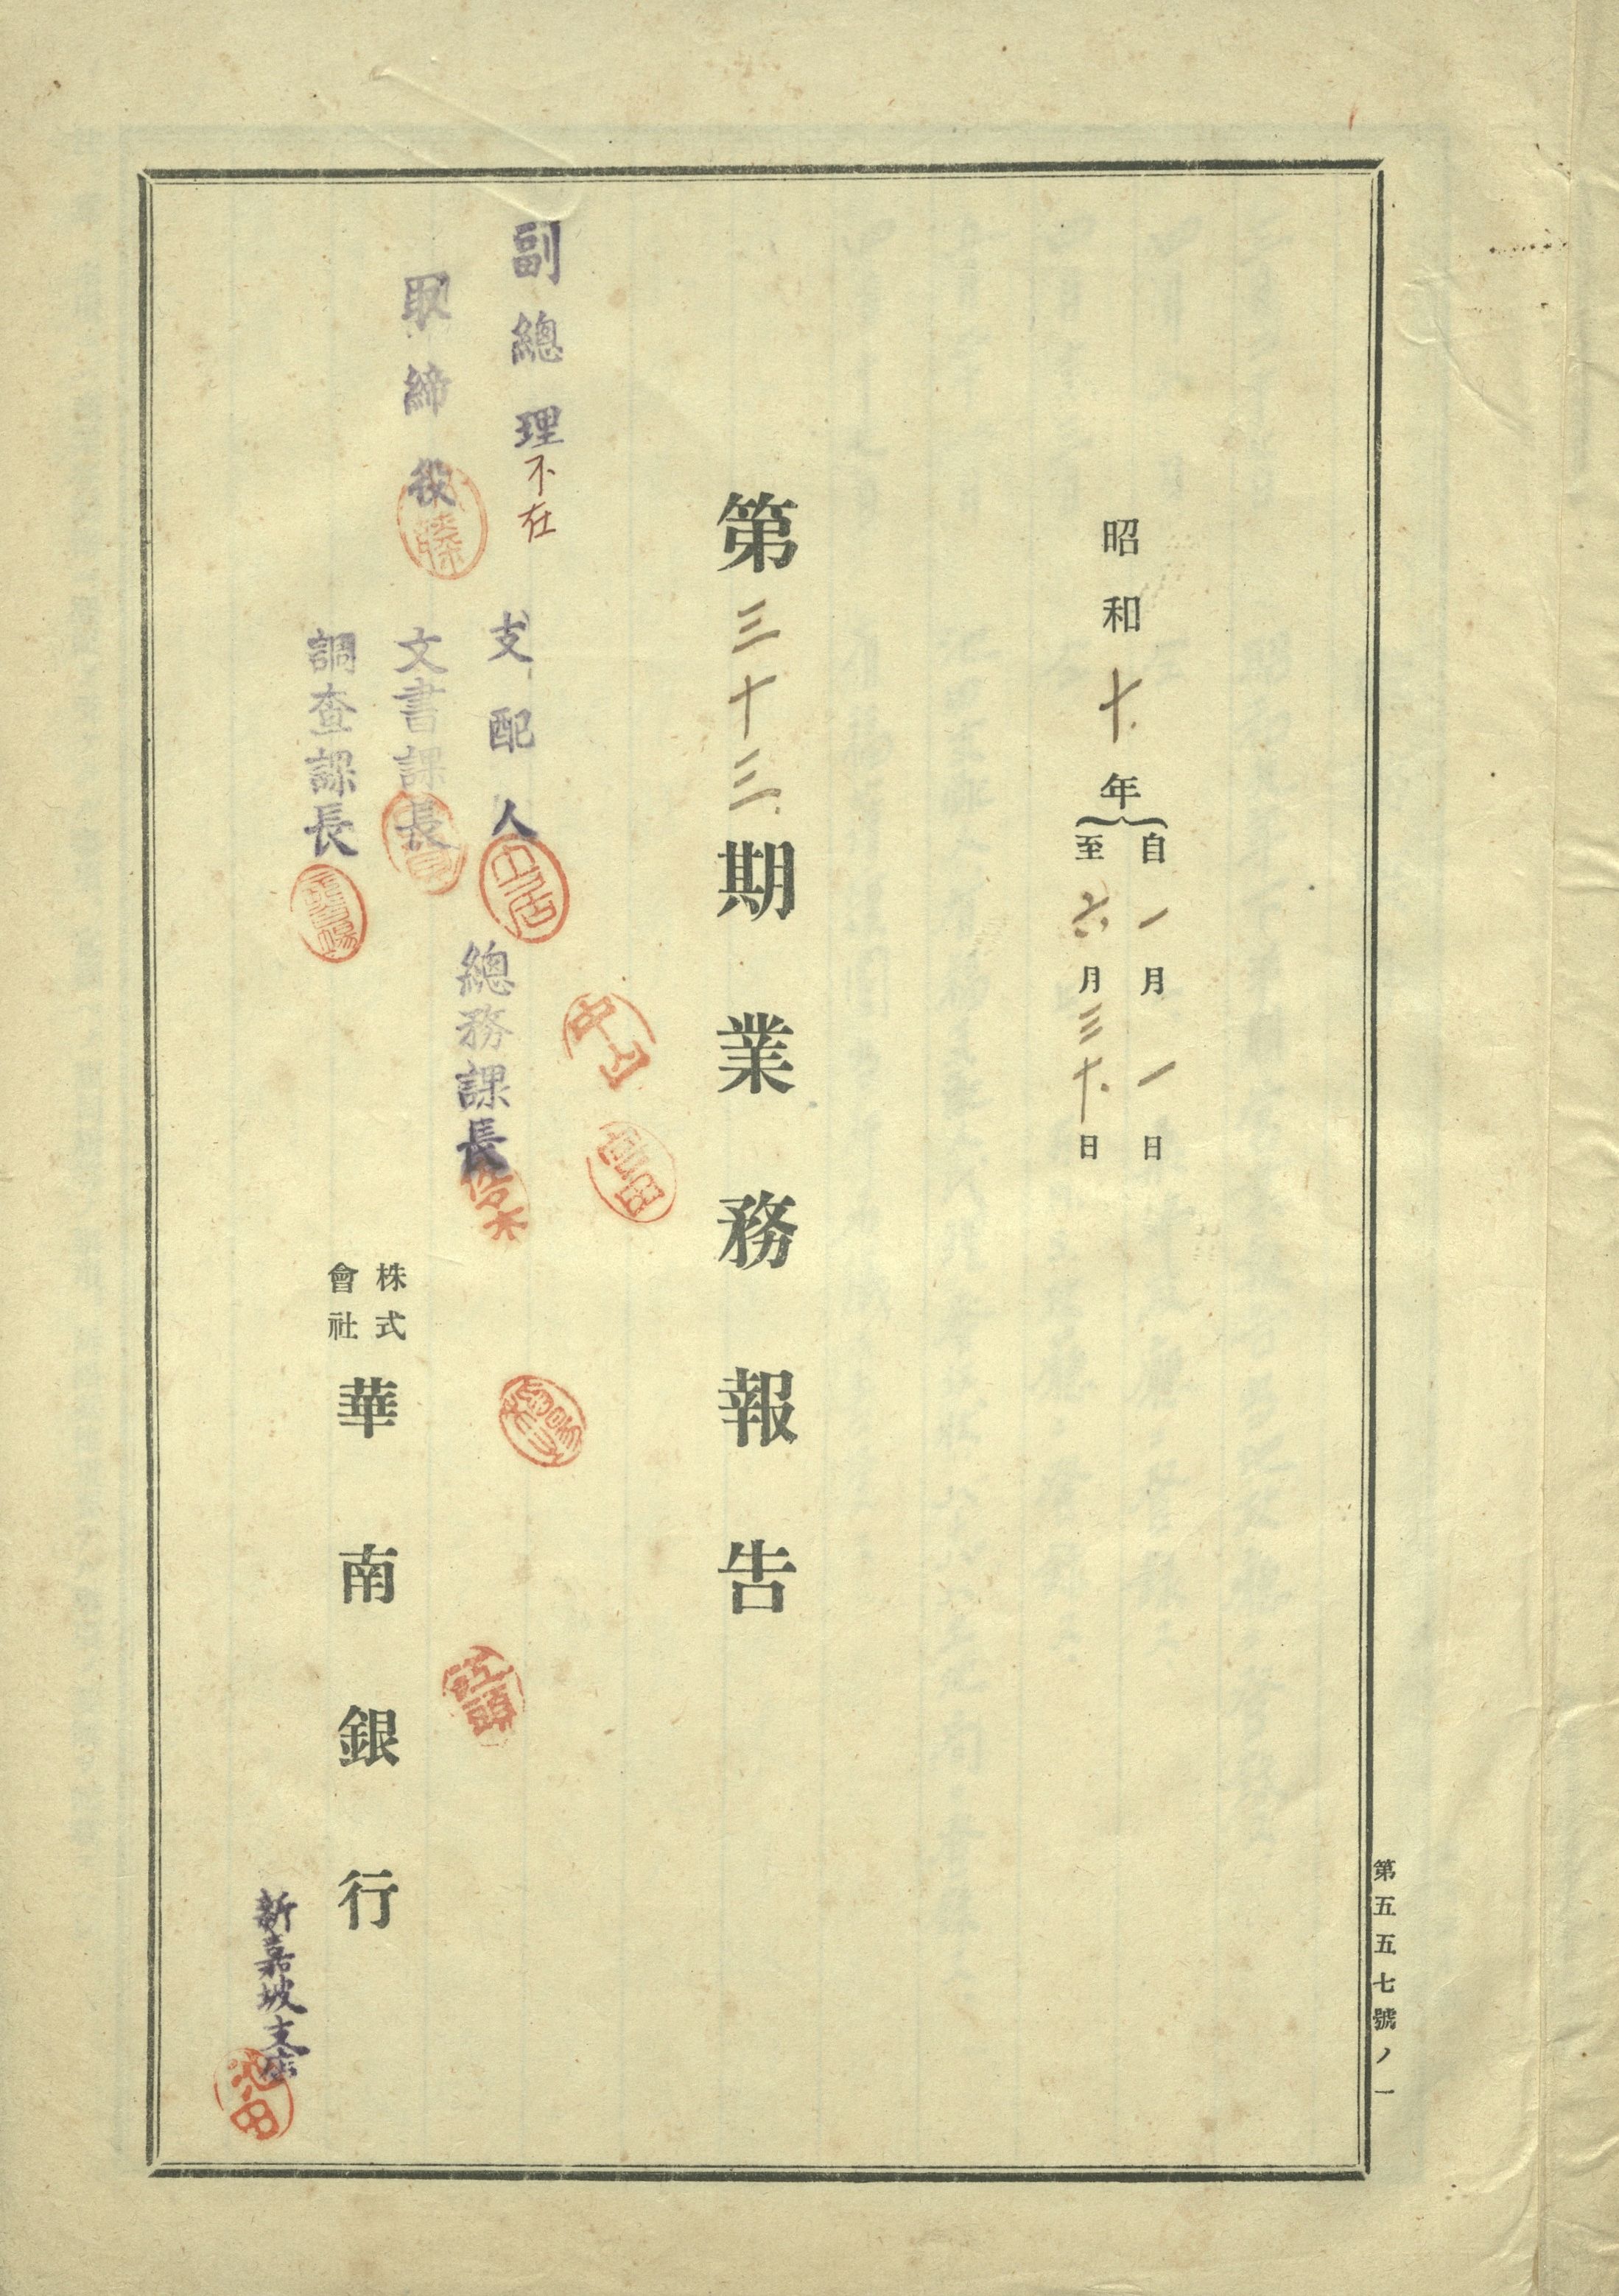 第五五七號ノ一
昭和十年
自一月一日
至六月三十日
第三十三期業務報告
副總理不在
取締役
支配人
文書課長
調查課長
總務課長
中山
江頭
株式
會社
華南銀行
新嘉坡支店
池田